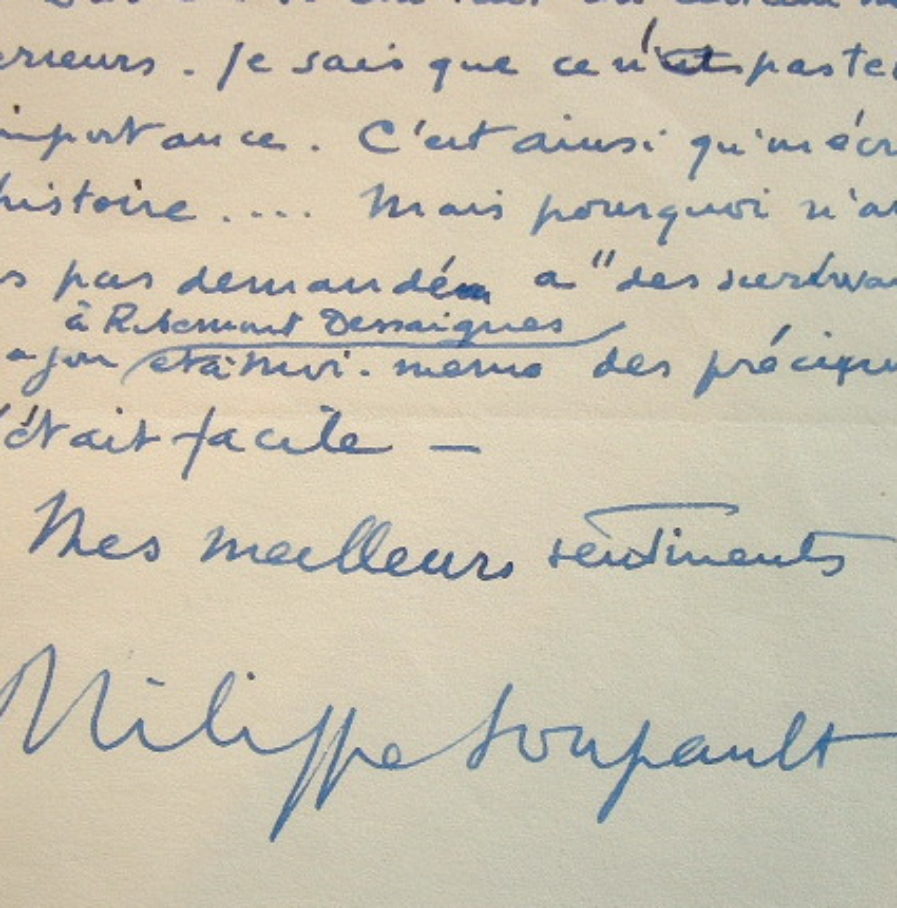 erreurs. Je sais que ce n'est pas
importance. C'est ainsi qu'on
histoire.... Mais pourquoi n'a
s pas demandé a "des
à Ribemont Dessaignes
et à moi-même des
était facile —
Mes meilleurs sentiments
Philippe Soupault